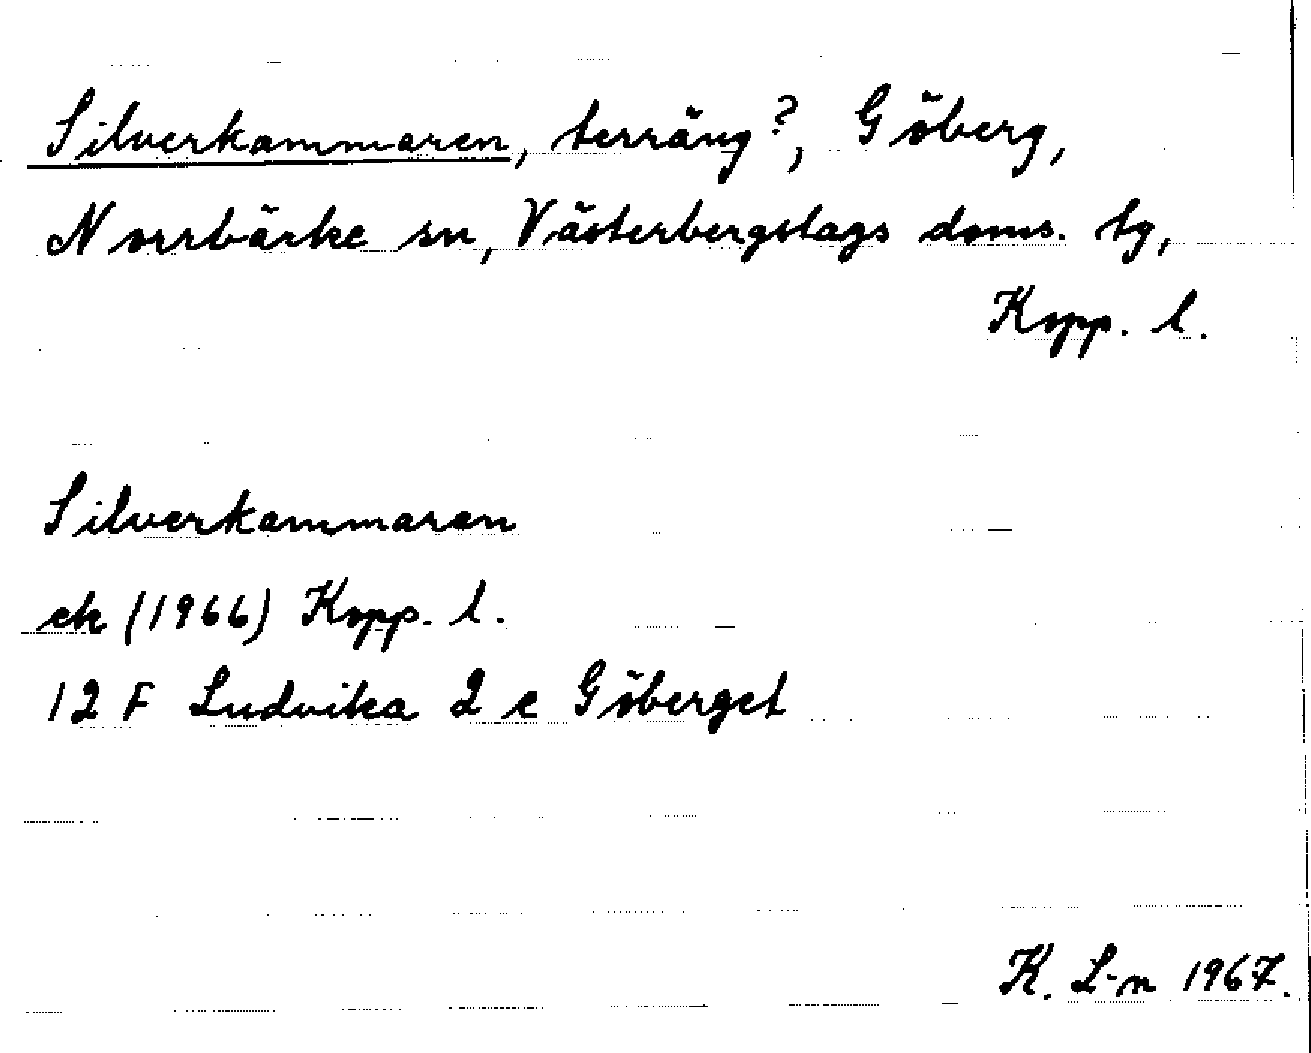 Silverkammaren, terräng?, Göberg,
Norrbärke sn, Västerbergslags doms. tg,
Kopp. l.
Silverkammaren
ek (1966) Kopp. l.
12 F Ludvika 2 e Göberget
K. L-n 1967.